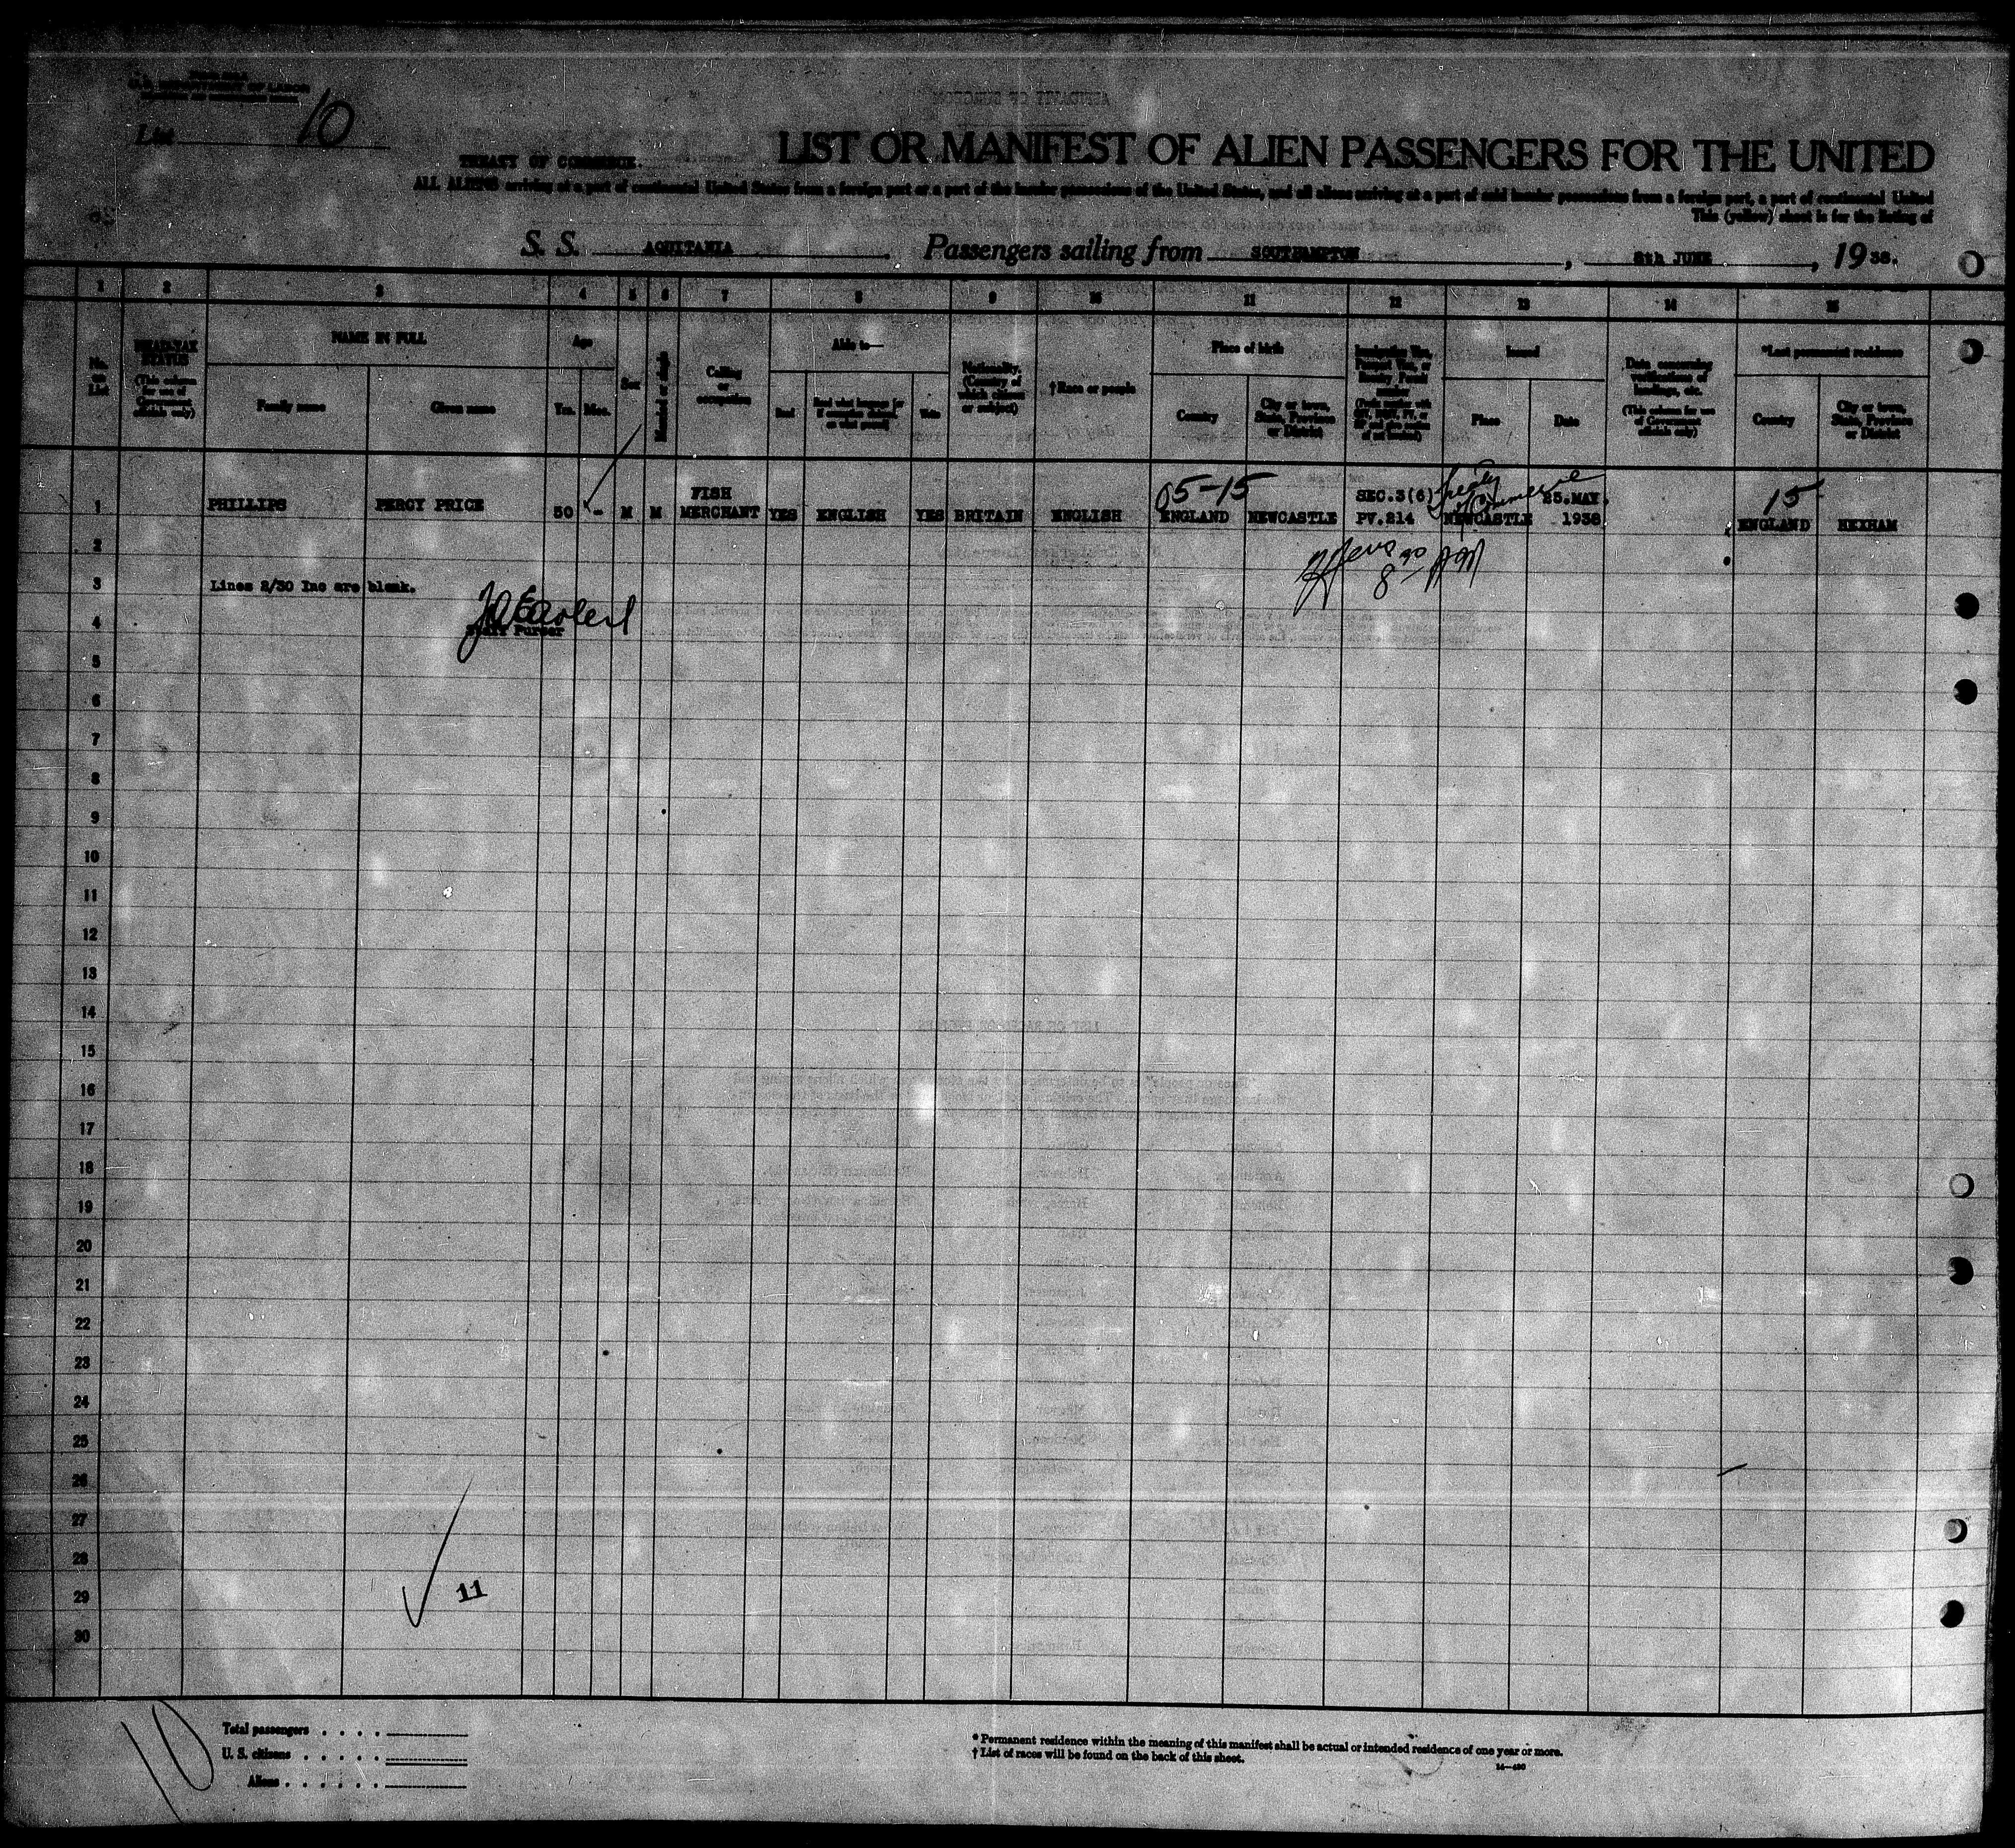 U.S. DEPARTMENT OF LABOR
List 10
LIST OR MANIFEST OF ALIEN PASSENGERS FOR THE UNITED
TREATY OF COMMERCE.
ALL ALIENS arriving at a port of continental United States from a foreign port or a port of the insular possessions of the United States, and all aliens arriving at a port of said insular possessions from a foreign port, a port of continental United
This (yellow) sheet is for the listing of
S. S. AQUITANIA. Passengers sailing from SOUTHAMPTON, 8th JUNE, 1938.
1 2 3 4 5 6 7 8 9 10 11 12 13 14 15
No. on List
HEAD-TAX STATUS (This column for use of Government officials only)
NAME IN FULL
Family name Given name
Age
Yrs. Mos.
Sex
Married or single
Calling or occupation
Able to—
Read Read what language [or if exemption claimed, on what ground] Write
Nationality. (Country of which citizen or subject)
†Race or people
Place of birth
Country City or town, State, Province or District
Immigration Visa, Passport Visa, or Reentry Permit number
Issued
Place Date
Data concerning verifications of landings, etc. (This column for use of Government officials only)
*Last permanent residence
Country City or town, State, Province or District
1 PHILLIPS PERCY PRICE 50 - M M FISH MERCHANT YES ENGLISH YES BRITAIN ENGLISH ENGLAND NEWCASTLE SEC.3(6) PV.214 NEWCASTLE 25.MAY. 1938 ENGLAND HEXHAM
05-15
Treaty of Commerce
15
2
3 Lines 2/30 Inc are blank.
4
Staff Purser
5
6
7
8
9
10
11
12
13
14
15
16
17
18
19
20
21
22
23
24
25
26
27
28
29
11
30
10
Total passengers . . . .
U. S. citizens . . . . .
Aliens . . . . . .
* Permanent residence within the meaning of this manifest shall be actual or intended residence of one year or more.
† List of races will be found on the back of this sheet.